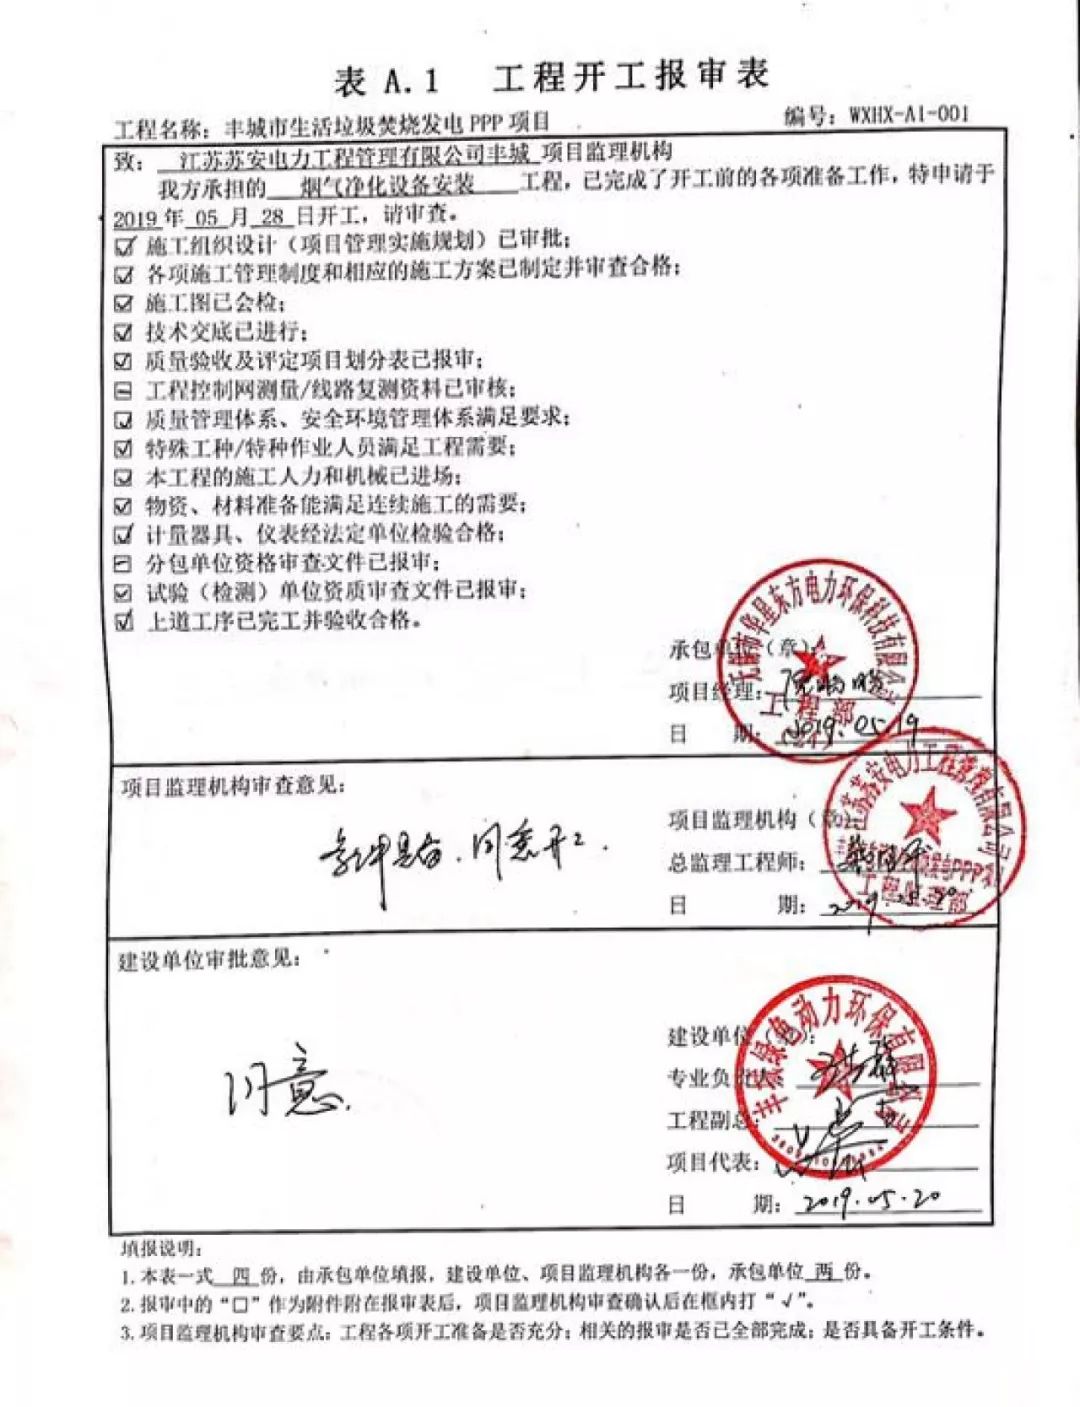 表 A.1 工程开工报审表
工程名称：丰城市生活垃圾焚烧发电 PPP 项目 编号：WXHX-A1-001
致： 江苏苏安电力工程管理有限公司丰城 项目监理机构
我方承担的 烟气净化设备安装 工程，已完成了开工前的各项准备工作，特申请于
2019 年 05 月 28 日开工，请审查。
☑ 施工组织设计（项目管理实施规划）已审批；
☑ 各项施工管理制度和相应的施工方案已制定并审查合格；
☑ 施工图已会检；
☑ 技术交底已进行；
☑ 质量验收及评定项目划分表已报审；
⊟ 工程控制网测量/线路复测资料已审核；
☑ 质量管理体系、安全环境管理体系满足要求；
☑ 特殊工种/特种作业人员满足工程需要；
☑ 本工程的施工人力和机械已进场；
☑ 物资、材料准备能满足连续施工的需要；
☑ 计量器具、仪表经法定单位检验合格；
⊟ 分包单位资格审查文件已报审；
☑ 试验（检测）单位资质审查文件已报审；
☑ 上道工序已完工并验收合格。
无锡市华星东方电力环保科技有限公司
工程部
承包单位（章）：
项目经理：
日 期：2019.05.19
项目监理机构审查意见：
同意开工.
江苏苏安电力工程管理有限公司
工程监理部
项目监理机构（章）：
总监理工程师：
日 期：2019.05.20
建设单位审批意见：
同意.
丰城绿色动力环保有限公司
建设单位（章）：
专业负责人：
工程副总：
项目代表：
日 期：2019.05.20
填报说明：
1. 本表一式 四 份，由承包单位填报，建设单位、项目监理机构各一份，承包单位 两 份。
2. 报审中的“□”作为附件附在报审表后，项目监理机构审查确认后在框内打“√”。
3. 项目监理机构审查要点：工程各项开工准备是否充分；相关的报审是否已全部完成；是否具备开工条件。